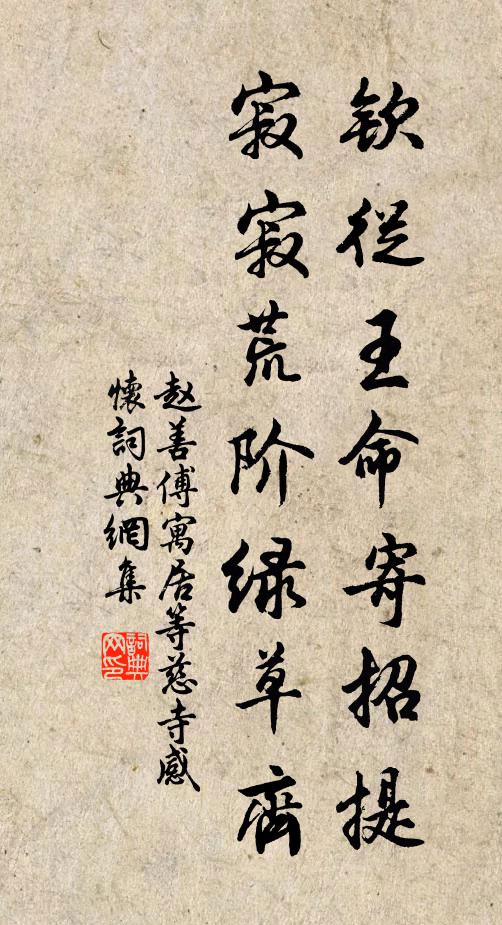 欽從王命寄招提
寂寂荒阶绿草齊
赵善傅寓居等慈寺感
懷詞典網集
詞典
网印